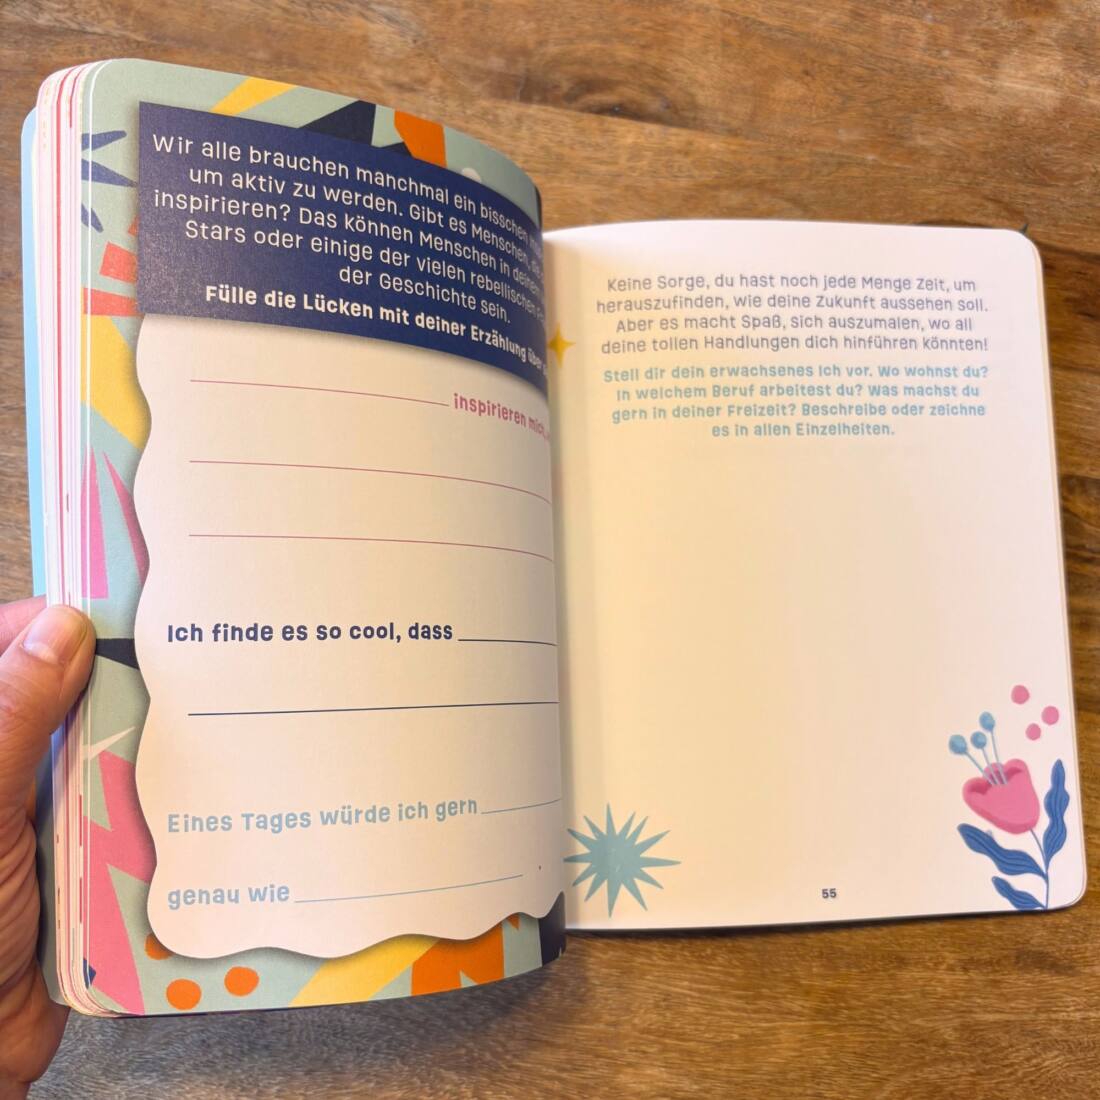 Wir alle brauchen manchmal ein bisschen
um aktiv zu werden. Gibt es Menschen, die
inspirieren? Das können Menschen in deinem
Stars oder einige der vielen rebellischen
der Geschichte sein.
Fülle die Lücken mit deiner Erzählung über
inspirieren mich,
Ich finde es so cool, dass
Eines Tages würde ich gern
genau wie
Keine Sorge, du hast noch jede Menge Zeit, um
herauszufinden, wie deine Zukunft aussehen soll.
Aber es macht Spaß, sich auszumalen, wo all
deine tollen Handlungen dich hinführen könnten!
Stell dir dein erwachsenes Ich vor. Wo wohnst du?
In welchem Beruf arbeitest du? Was machst du
gern in deiner Freizeit? Beschreibe oder zeichne
es in allen Einzelheiten.
55